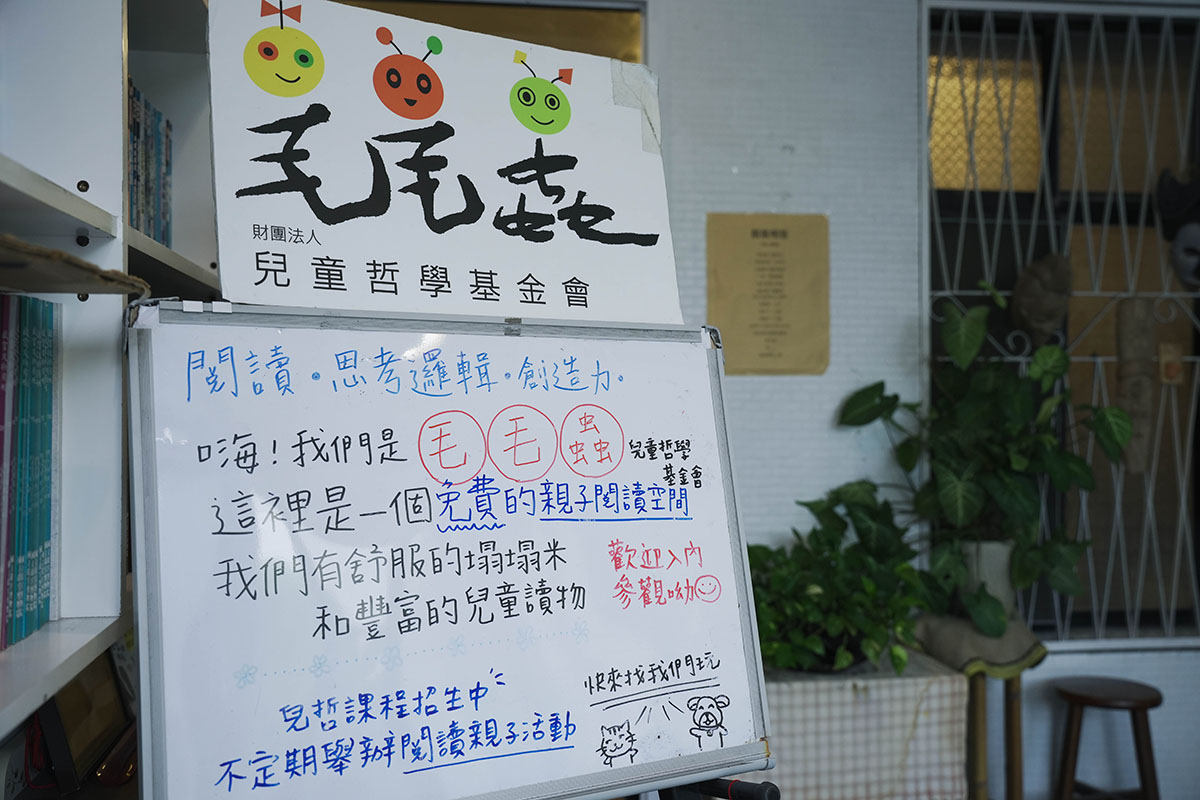 毛毛蟲
財團法人
兒童哲學基金會
閱讀。思考邏輯。創造力。
嗨！我們是毛毛蟲兒童哲學
基金會
這裡是一個免費的親子閱讀空間
我們有舒服的塌塌米
和豐富的兒童讀物
歡迎入內
參觀呦
兒哲課程招生中
不定期舉辦閱讀親子活動
快來找我們玩